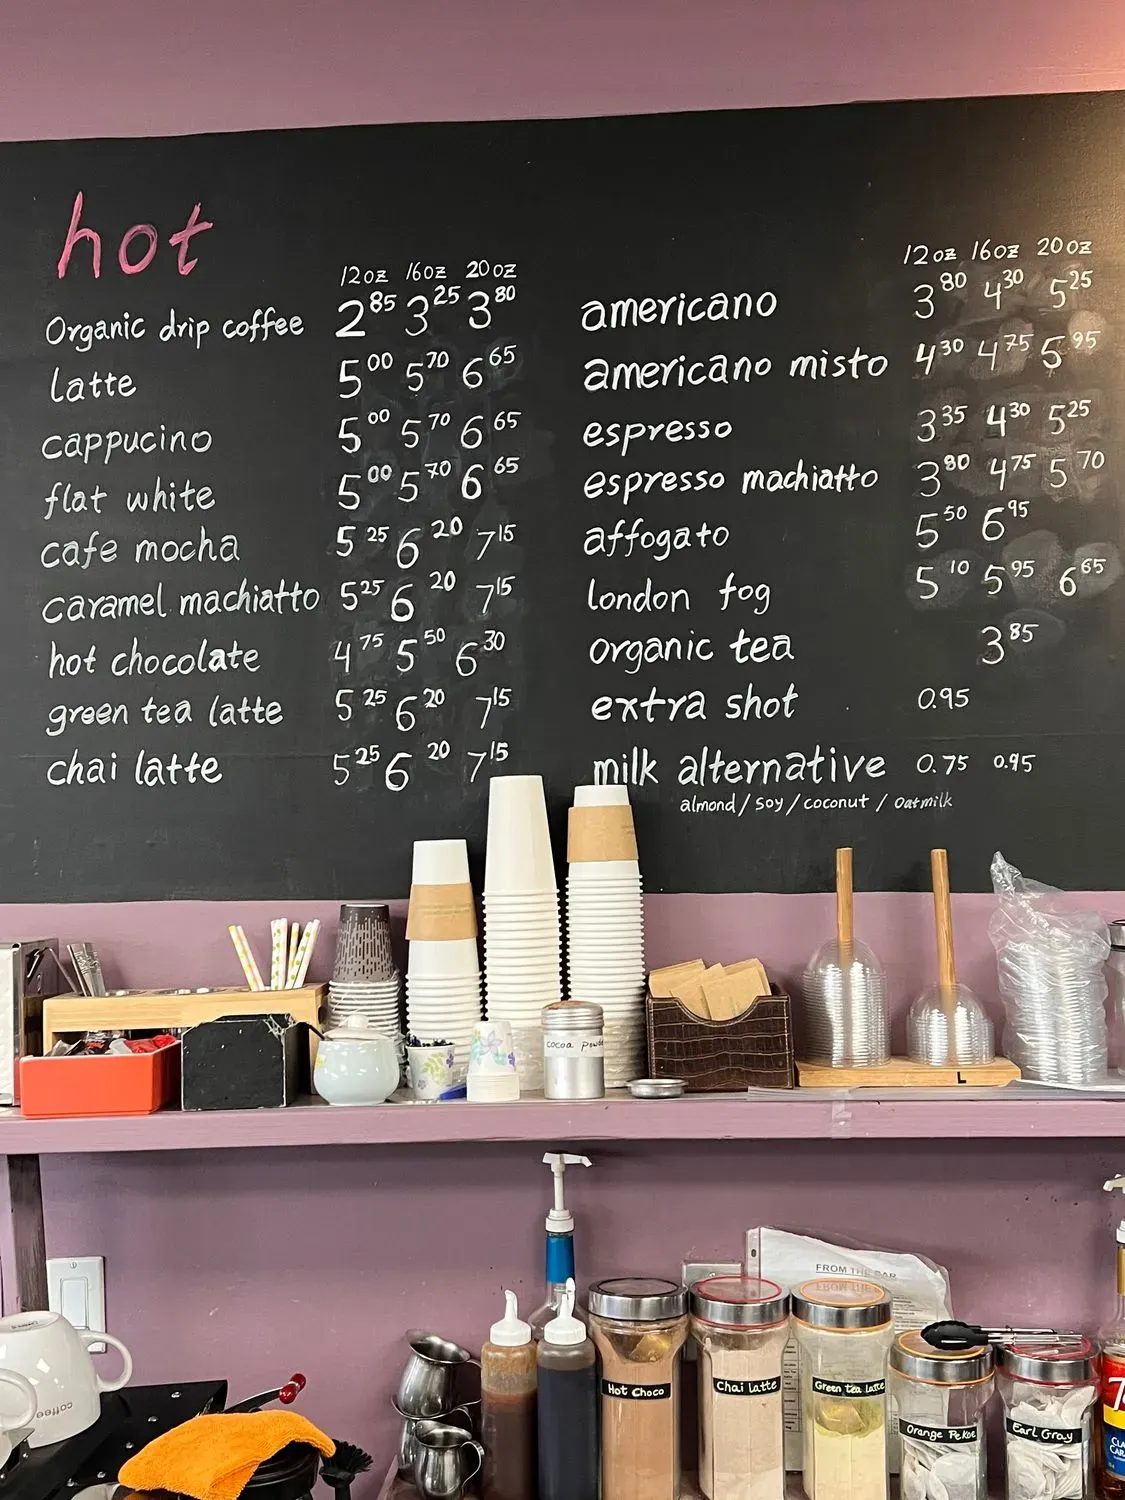 hot
12oz 16oz 20oz
Organic drip coffee 2.85 3.25 3.80
latte 5.00 5.70 6.65
cappucino 5.00 5.70 6.65
flat white 5.00 5.70 6.65
cafe mocha 5.25 6.20 7.15
caramel machiatto 5.25 6.20 7.15
hot chocolate 4.75 5.50 6.30
green tea latte 5.25 6.20 7.15
chai latte 5.25 6.20 7.15
12oz 16oz 20oz
americano 3.80 4.30 5.25
americano misto 4.30 4.75 5.95
espresso 3.35 4.30 5.25
espresso machiatto 3.80 4.75 5.70
affogato 5.50 6.95
london fog 5.10 5.95 6.65
organic tea 3.85
extra shot 0.95
milk alternative 0.75 0.95
almond / soy / coconut / oatmilk
cocoa
L
FROM THE BAR
coffee
Hot Choco
Chai latte
Green tea latte
Orange Pekoe
Earl Gray